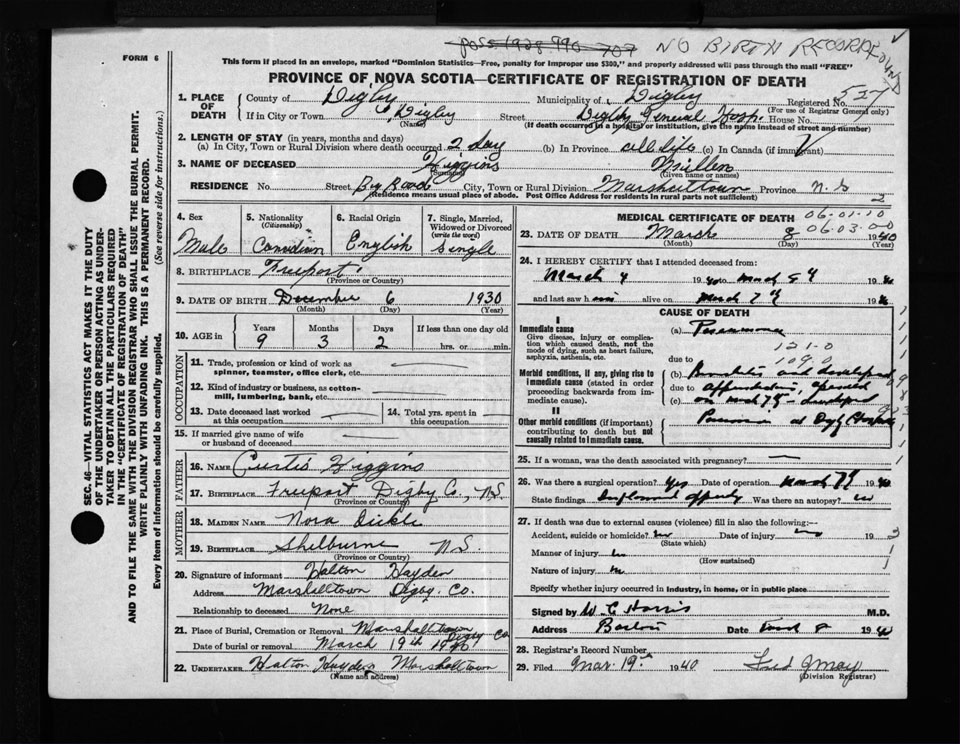 NO BIRTH RECORD
FORM 6
This form if placed in an envelope, marked "Dominion Statistics—Free, penalty for improper use $300," and properly addressed will pass through the mail "FREE"
PROVINCE OF NOVA SCOTIA—CERTIFICATE OF REGISTRATION OF DEATH
527
1. PLACE OF DEATH County of Digby Municipality of Digby Registered No.
(For use of Registrar General only)
If in City or Town Digby Street Digby General Hosp. House No.
(Name) (If death occurred in a hospital or institution, give the name instead of street and number)
2. LENGTH OF STAY (in years, months and days)
(a) In City, Town or Rural Division where death occurred 2 day (b) In Province all life (c) In Canada (if immigrant)
3. NAME OF DECEASED Higgins Millen
(Surname) (Given name or names)
RESIDENCE No. Street Big Road City, Town or Rural Division Marshalltown Province N.S
(Residence means usual place of abode. Post Office Address for residents in rural parts not sufficient) 2
4. Sex 5. Nationality (Citizenship) 6. Racial Origin 7. Single, Married, Widowed or Divorced (write the word)
Male Canadian English Single
8. BIRTHPLACE Freeport
(Province or Country)
9. DATE OF BIRTH December 6 1930
(Month) (Day) (Year)
10. AGE in Years Months Days If less than one day old
9 3 2 hrs. or min.
OCCUPATION
11. Trade, profession or kind of work as spinner, teamster, office clerk, etc.
12. Kind of industry or business, as cotton-mill, lumbering, bank, etc.
13. Date deceased last worked at this occupation 14. Total yrs. spent in this occupation
15. If married give name of wife or husband of deceased
FATHER
16. NAME Curtis Higgins
17. BIRTHPLACE Freeport Digby Co., N.S.
(Province or Country)
MOTHER
18. MAIDEN NAME Nora
19. BIRTHPLACE Shelburne N.S.
(Province or Country)
20. Signature of informant Halton Hayden
Address Marshalltown Digby. Co.
Relationship to deceased None
21. Place of Burial, Cremation or Removal Marshalltown Digby Co
Date of burial or removal March 19th 1940
22. UNDERTAKER Halton Hayden Marshalltown
(Name and address)
MEDICAL CERTIFICATE OF DEATH 06-01-10
06-03-00
23. DATE OF DEATH March 8 1940
(Month) (Day) (Year)
24. I HEREBY CERTIFY that I attended deceased from:
March 4 1940 to March 8th 1940
and last saw him alive on March 7th 19
CAUSE OF DEATH
I
Immediate cause
Give disease, injury or complication which caused death, not the mode of dying, such as heart failure, asphyxia, asthenia, etc.
(a) Pneumonia
121-0
109.0
due to
Morbid conditions, if any, giving rise to immediate cause (stated in order proceeding backwards from immediate cause).
(b) Bronchitis and developed
due to appendicitis operated
(c) on March 7th developed
II
Other morbid conditions (if important) contributing to death but not causally related to immediate cause.
Pneumonia at Digby Hospital
25. If a woman, was the death associated with pregnancy?
26. Was there a surgical operation? Yes Date of operation March 7th 1940
State findings Inflamed Was there an autopsy? no
27. If death was due to external causes (violence) fill in also the following:—
Accident, suicide or homicide? no Date of injury no 19
(State which)
Manner of injury no
(How sustained)
Nature of injury no
Specify whether injury occurred in industry, in home, or in public place
Signed by W C Harris M.D.
Address Barton Date 8 1940
28. Registrar's Record Number
29. Filed Mar. 19th 1940
(Division Registrar)
SEC. 46—VITAL STATISTICS ACT MAKES IT THE DUTY OF THE UNDERTAKER OR PERSON ACTING AS UNDERTAKER TO OBTAIN ALL THE PARTICULARS REQUIRED IN THE "CERTIFICATE OF REGISTRATION OF DEATH" AND TO FILE THE SAME WITH THE DIVISION REGISTRAR WHO SHALL ISSUE THE BURIAL PERMIT.
WRITE PLAINLY WITH UNFADING INK. THIS IS A PERMANENT RECORD.
Every item of information should be carefully supplied. (See reverse side for instructions.)